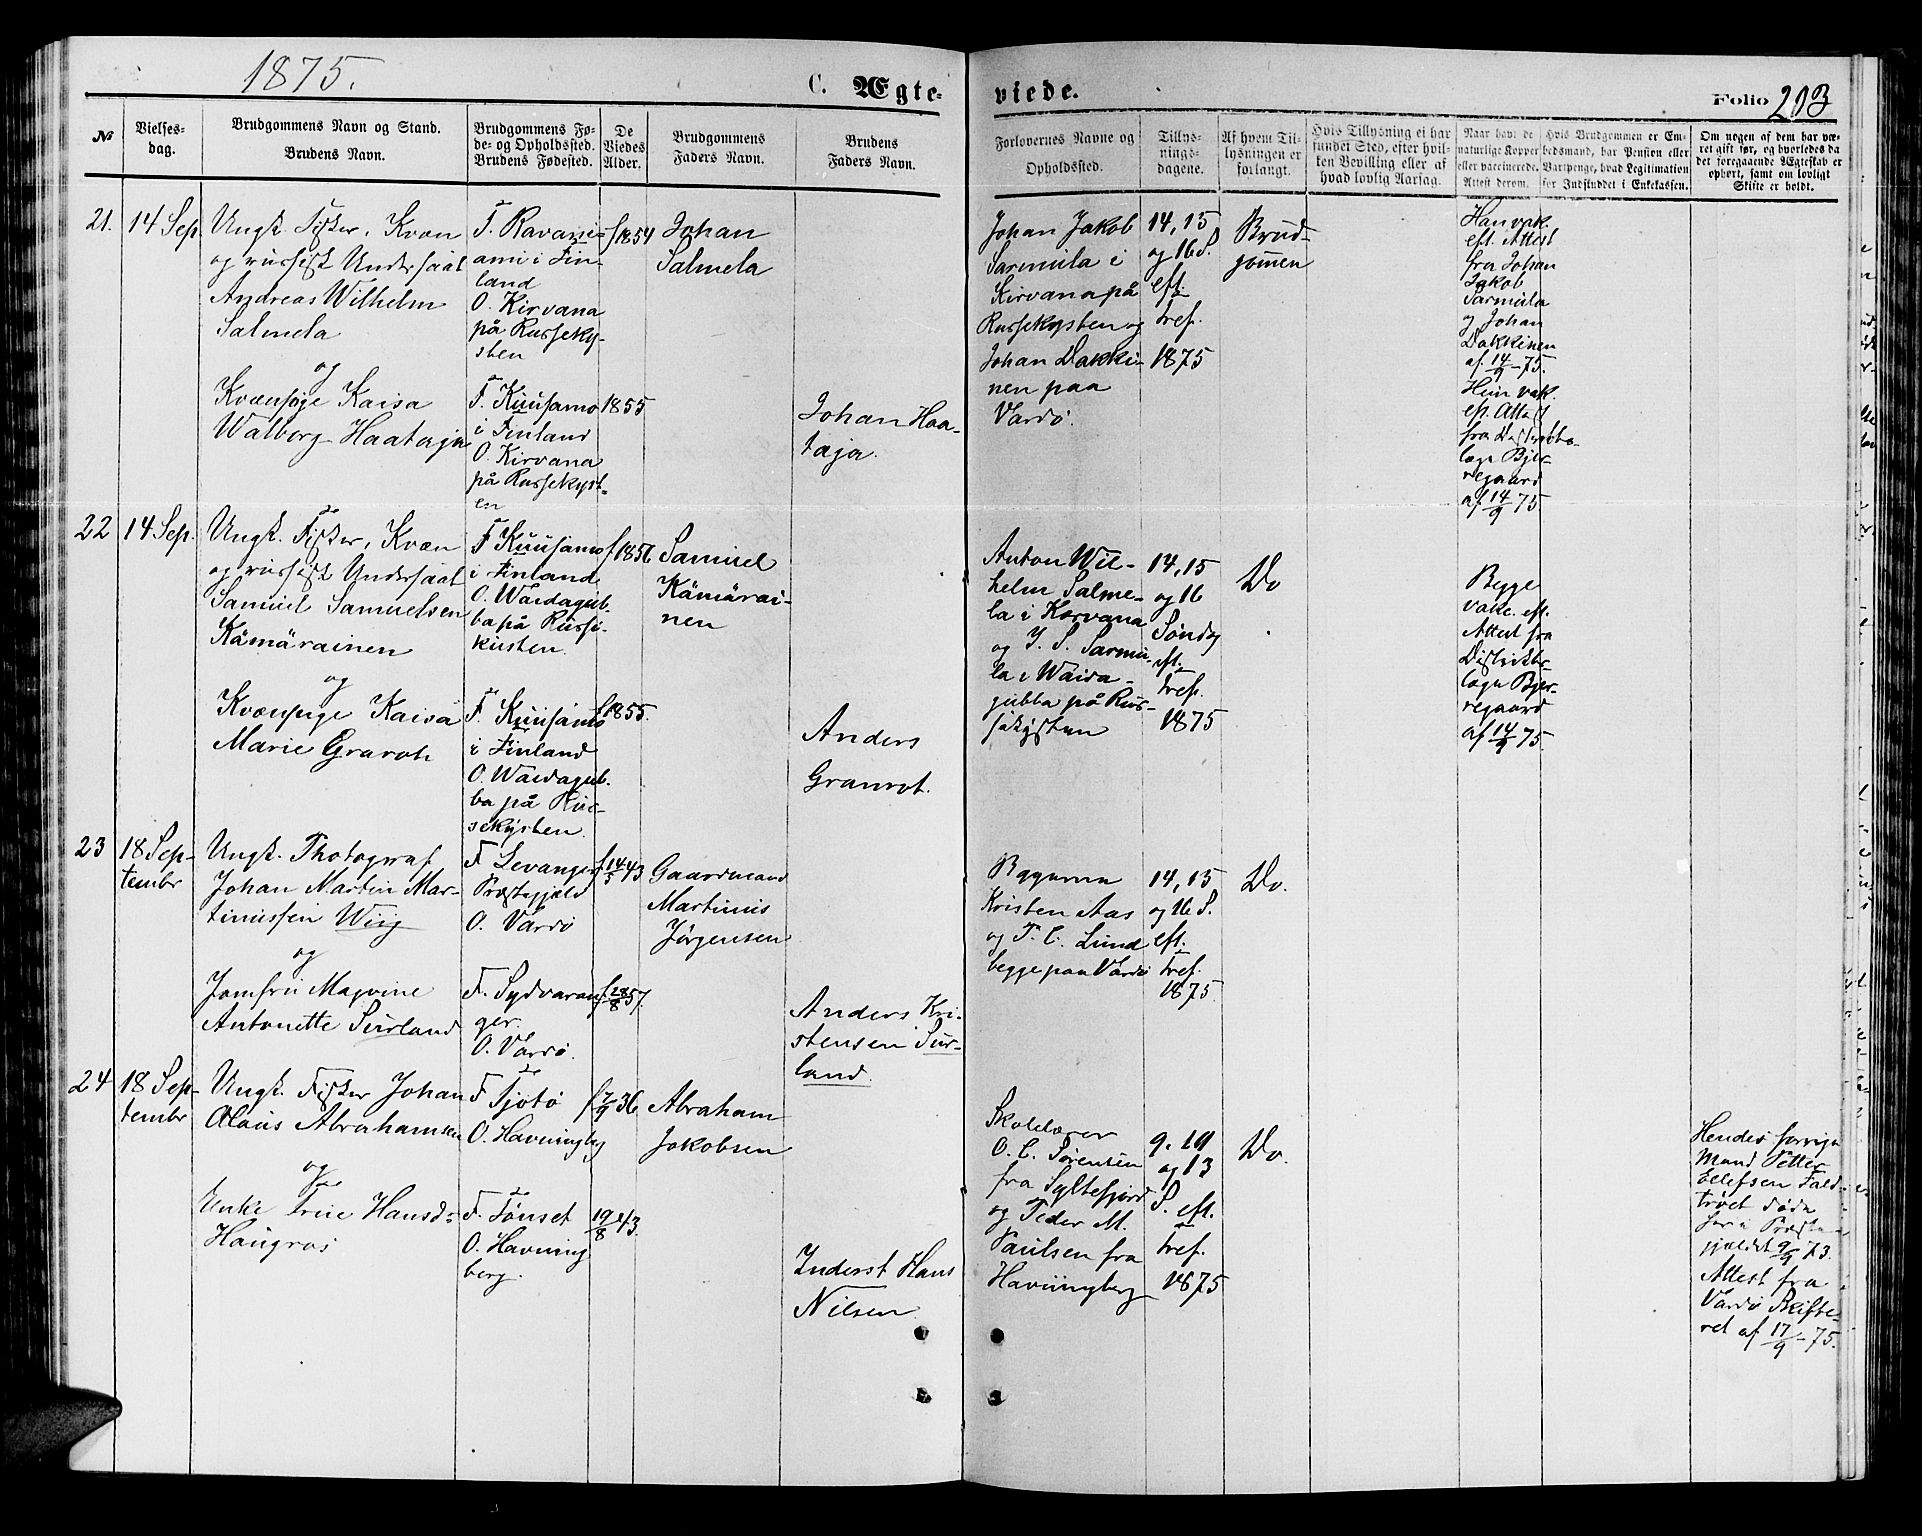 1875.
C. Ægte-
viede.
Folio 203
№
Vielses-
dag.
Brudgommens Navn og Stand.
Brudens Navn.
Brudgommens Fø-
de- og Opholdssted.
Brudens Fødested.
De
Viedes
Alder.
Brudgommens
Faders Navn.
Brudens
Faders Navn.
Forlovernes Navne og
Opholdssted.
Tillys-
nings-
dagene.
Af hvem Til-
lysningen er
forlangt.
Hvis Tillysning ei har
fundet Sted, efter hvil-
ken Bevilling eller af
hvad lovlig Aarsag.
Naar havt de
naturlige Kopper
eller vaccinerede.
Attest derom.
Hvis Brudgommen er Em-
bedsmand, har Pension eller
Vartpenge, hvad Legitimation
for Indskuddet i Enkekassen.
Om nogen af dem har væ-
ret gift før, og hvorledes da
det foregaaende Ægteskab er
ophørt, samt om lovligt
Skifte er holdt.
21.
14 Sep.
Ungk. Fisker, Kvæn
og russisk Undersaat
Andreas Wilhelm
Salmela
og
Kvænpige Kaisa
Walborg Haataja
F. Ravani-
emi i Fin-
land
O. Kirvana
på Russeky-
sten
F. Kuusamo
i Finland
O. Kirvana
på Russekyst-
en
f. 1854
1855
Johan
Salmela
Johan Haa-
taja.
Johan Jakob
Sarmula i
Kirvana på
Russekysten og
Johan Dakki-
nen paa
Vardø.
14, 15
og 16 S.
eft.
tref.
1875
Brud-
gomen
Han vak.
eft. Attest
fra Johan
Jakob
Sarmula
og Johan
Dakkinen
af 14/9-75.
Hun vak.
ef. Attest
fra Distrikts-
læge Bjer-
regaard
af 14/9 75
22
14 Sep.
Ungk. Fisker, Kvæn
og russisk Undersaat
Samuel Samuelsen
Kämäräinen
og
Kvænpige Kaisa
Marie Granrot
F Kuusamo
i Finland
O. Waidagub-
ba på Russe-
kusten.
F. Kuusamo
i Finland
O. Waidagub-
ba på Rus-
sekysten.
f. 1856
f. 1855.
Samuel
Kämärai-
nen
Anders
Granrot.
Anton Wil-
helm Salme-
la i Korvana
og J. S. Sarmu-
la i Waida-
gubba på Rus-
sekysten
14, 15
og 16
Søndag
eft.
tref.
1875
Do
Begge
vakc. eft.
Attest fra
Distrikts-
læge Bjer-
regaard
af 14/9 75.
23
18 Sep-
tembr
Ungk. Photograf
Johan Martin Mar-
tinussen Wiig
og
Jomfru Magvine
Antonette Surland
F Levanger
Præstegjæld
O. Vardø
F. Sydvaran-
ger.
O. Vardø.
f. 14/5 43
f. 28/8 57.
Gaardmand
Martinus
Jørgensen
Anders Kri-
stensen Sur-
land.
Kristen Aas
og P. C. Lund
begge paa Vardø
14, 15
og 16 S.
eft.
tref.
1875
Do.
24
18 Sep-
tembr
Ungk. Fisker Johan
Olaus Abrahamsen
og
Enke Trine Hansd:
Haugros
F Tjøtø
O. Havningby
F. Tønset
O. Havning
berg.
f. 7/9 36
19/8 43.
Abraham
Jakobsen
Inderst Hans
Nilsen
Skolelærer
O. C. Sørensen
fra Syltefjord
og Peder M.
Paulsen fra
Havningberg
9. 10
og 13
S. eft.
tref.
1875
Do.
Hendes forrige
Mand Petter
Ellefsen Fald-
trøet døde
her i Præste-
gjældet 9/9 73.
Attest fra
Vardø Skifte-
ret af 17/9-75.